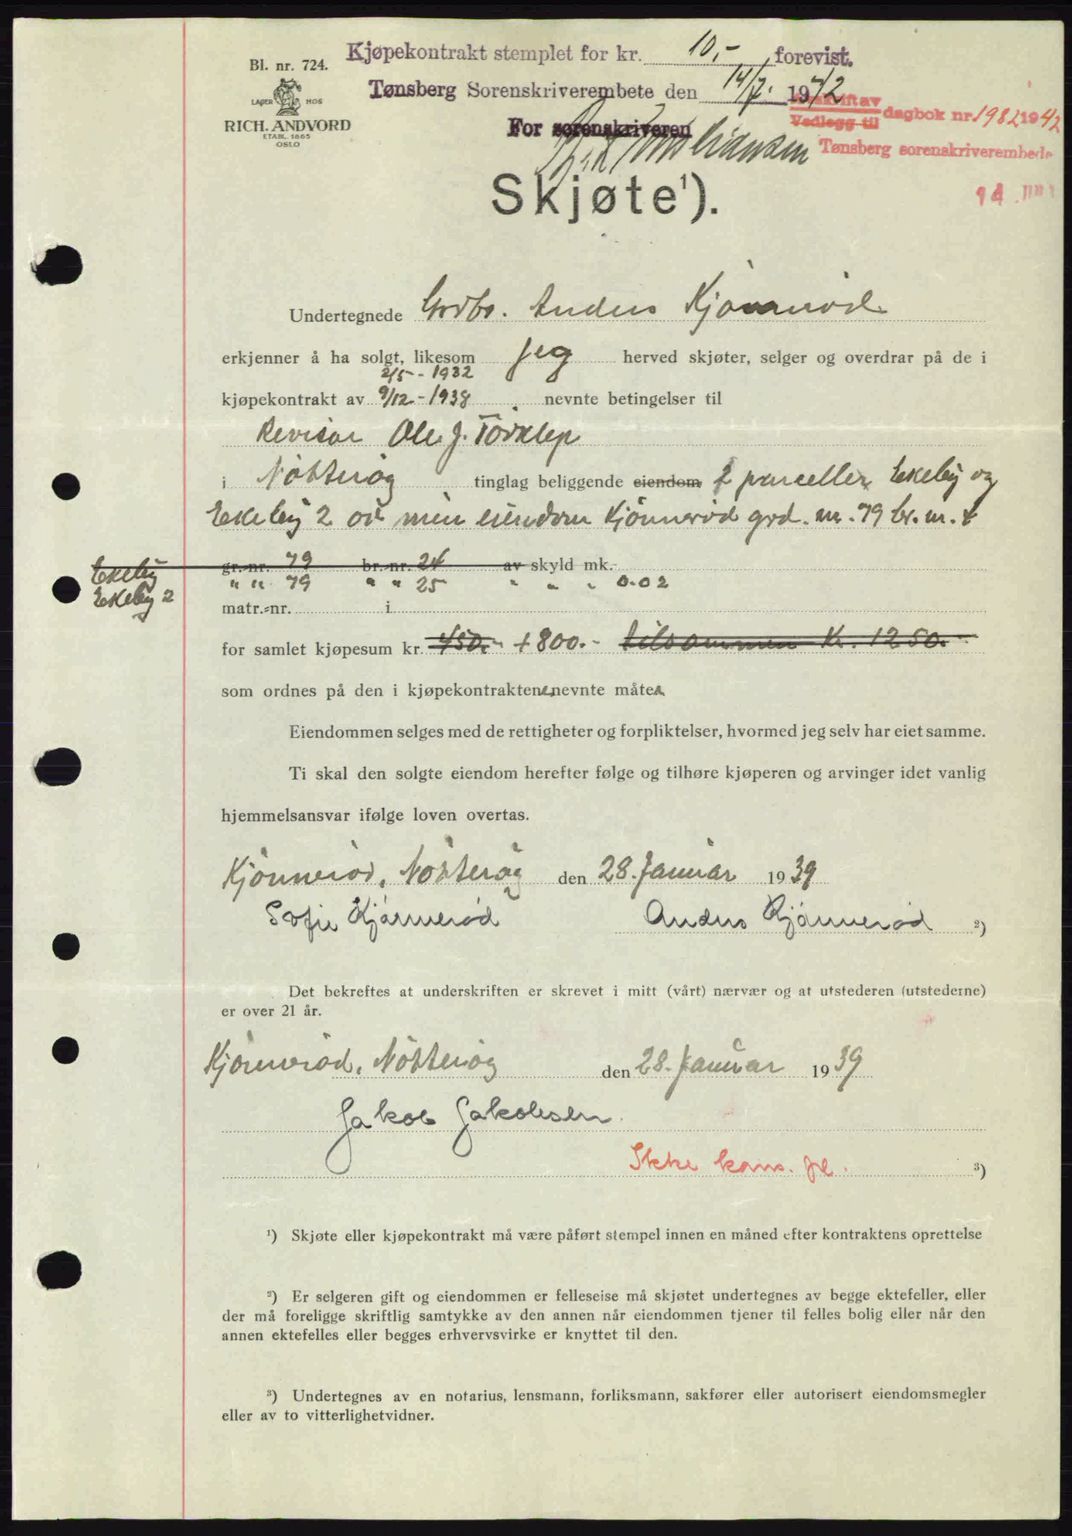 Bl. nr. 724.
LAGER HOS
RICH. ANDVORD
ETABL. 1865
OSLO
Kjøpekontrakt stemplet for kr. 10,- forevist.
Tønsberg Sorenskriverembete den 14/7. 1942
For sorenskriveren
Vedlegg til dagbok nr. 1982 1942
Tønsberg sorenskriverembede
14
Skjøte¹).
Undertegnede Grdbr. Anders Kjønnerød
erkjenner å ha solgt, likesom jeg herved skjøter, selger og overdrar på de i
2/5 - 1932
kjøpekontrakt av 9/12 - 1938 nevnte betingelser til
Revisor Ole J. Torklep
i Nøtterøy tinglag beliggende eiendom 2 parceller Ekeby og
Ekeby 2 av min eiendom Kjönneröd grd. nr. 79 br. nr. 4
Ekeby gr.-nr. 79 br.-nr. 24 av skyld mk.
Ekeby 2 " " 79 " " 25 " " " 0.02
matr.-nr. i
for samlet kjøpesum kr. 450.- + 800.- tilsammen Kr. 1250.-
som ordnes på den i kjøpekontrakten nevnte måte
Eiendommen selges med de rettigheter og forpliktelser, hvormed jeg selv har eiet samme.
Ti skal den solgte eiendom herefter følge og tilhøre kjøperen og arvinger idet vanlig
hjemmelsansvar ifølge loven overtas.
Kjönneröd, Nötteröy den 28. Januar 1939
Sofie Kjønnerød Anders Kjønnerød ²)
Det bekreftes at underskriften er skrevet i mitt (vårt) nærvær og at utstederen (utstederne)
er over 21 år.
Kjönneröd, Nötteröy den 28. Januar 1939
Jakob Jakobsen.
Ikke kons. pl. ³)
¹) Skjøte eller kjøpekontrakt må være påført stempel innen en måned efter kontraktens oprettelse
²) Er selgeren gift og eiendommen er felleseie må skjøtet undertegnes av begge ektefeller, eller
der må foreligge skriftlig samtykke av den annen når eiendommen tjener til felles bolig eller når den
annen ektefelles eller begges erhvervsvirke er knyttet til den.
³) Undertegnes av en notarius, lensmann, forliksmann, sakfører eller autorisert eiendomsmegler
eller av to vitterlighetvidner.